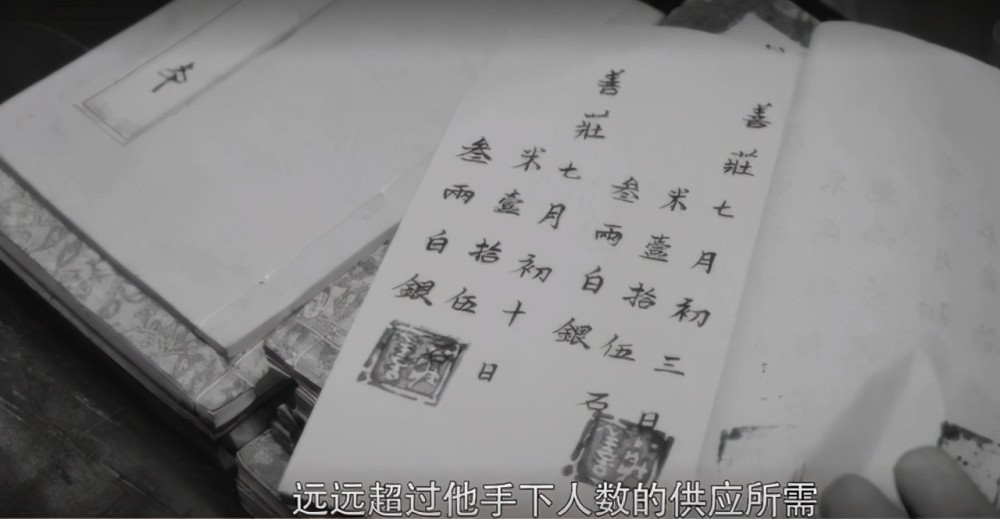 善莊
七月初三日
米壹拾伍石
叁兩白銀
善莊
七月初十日
米壹拾伍石
叁兩白銀
远远超过他手下人数的供应所需